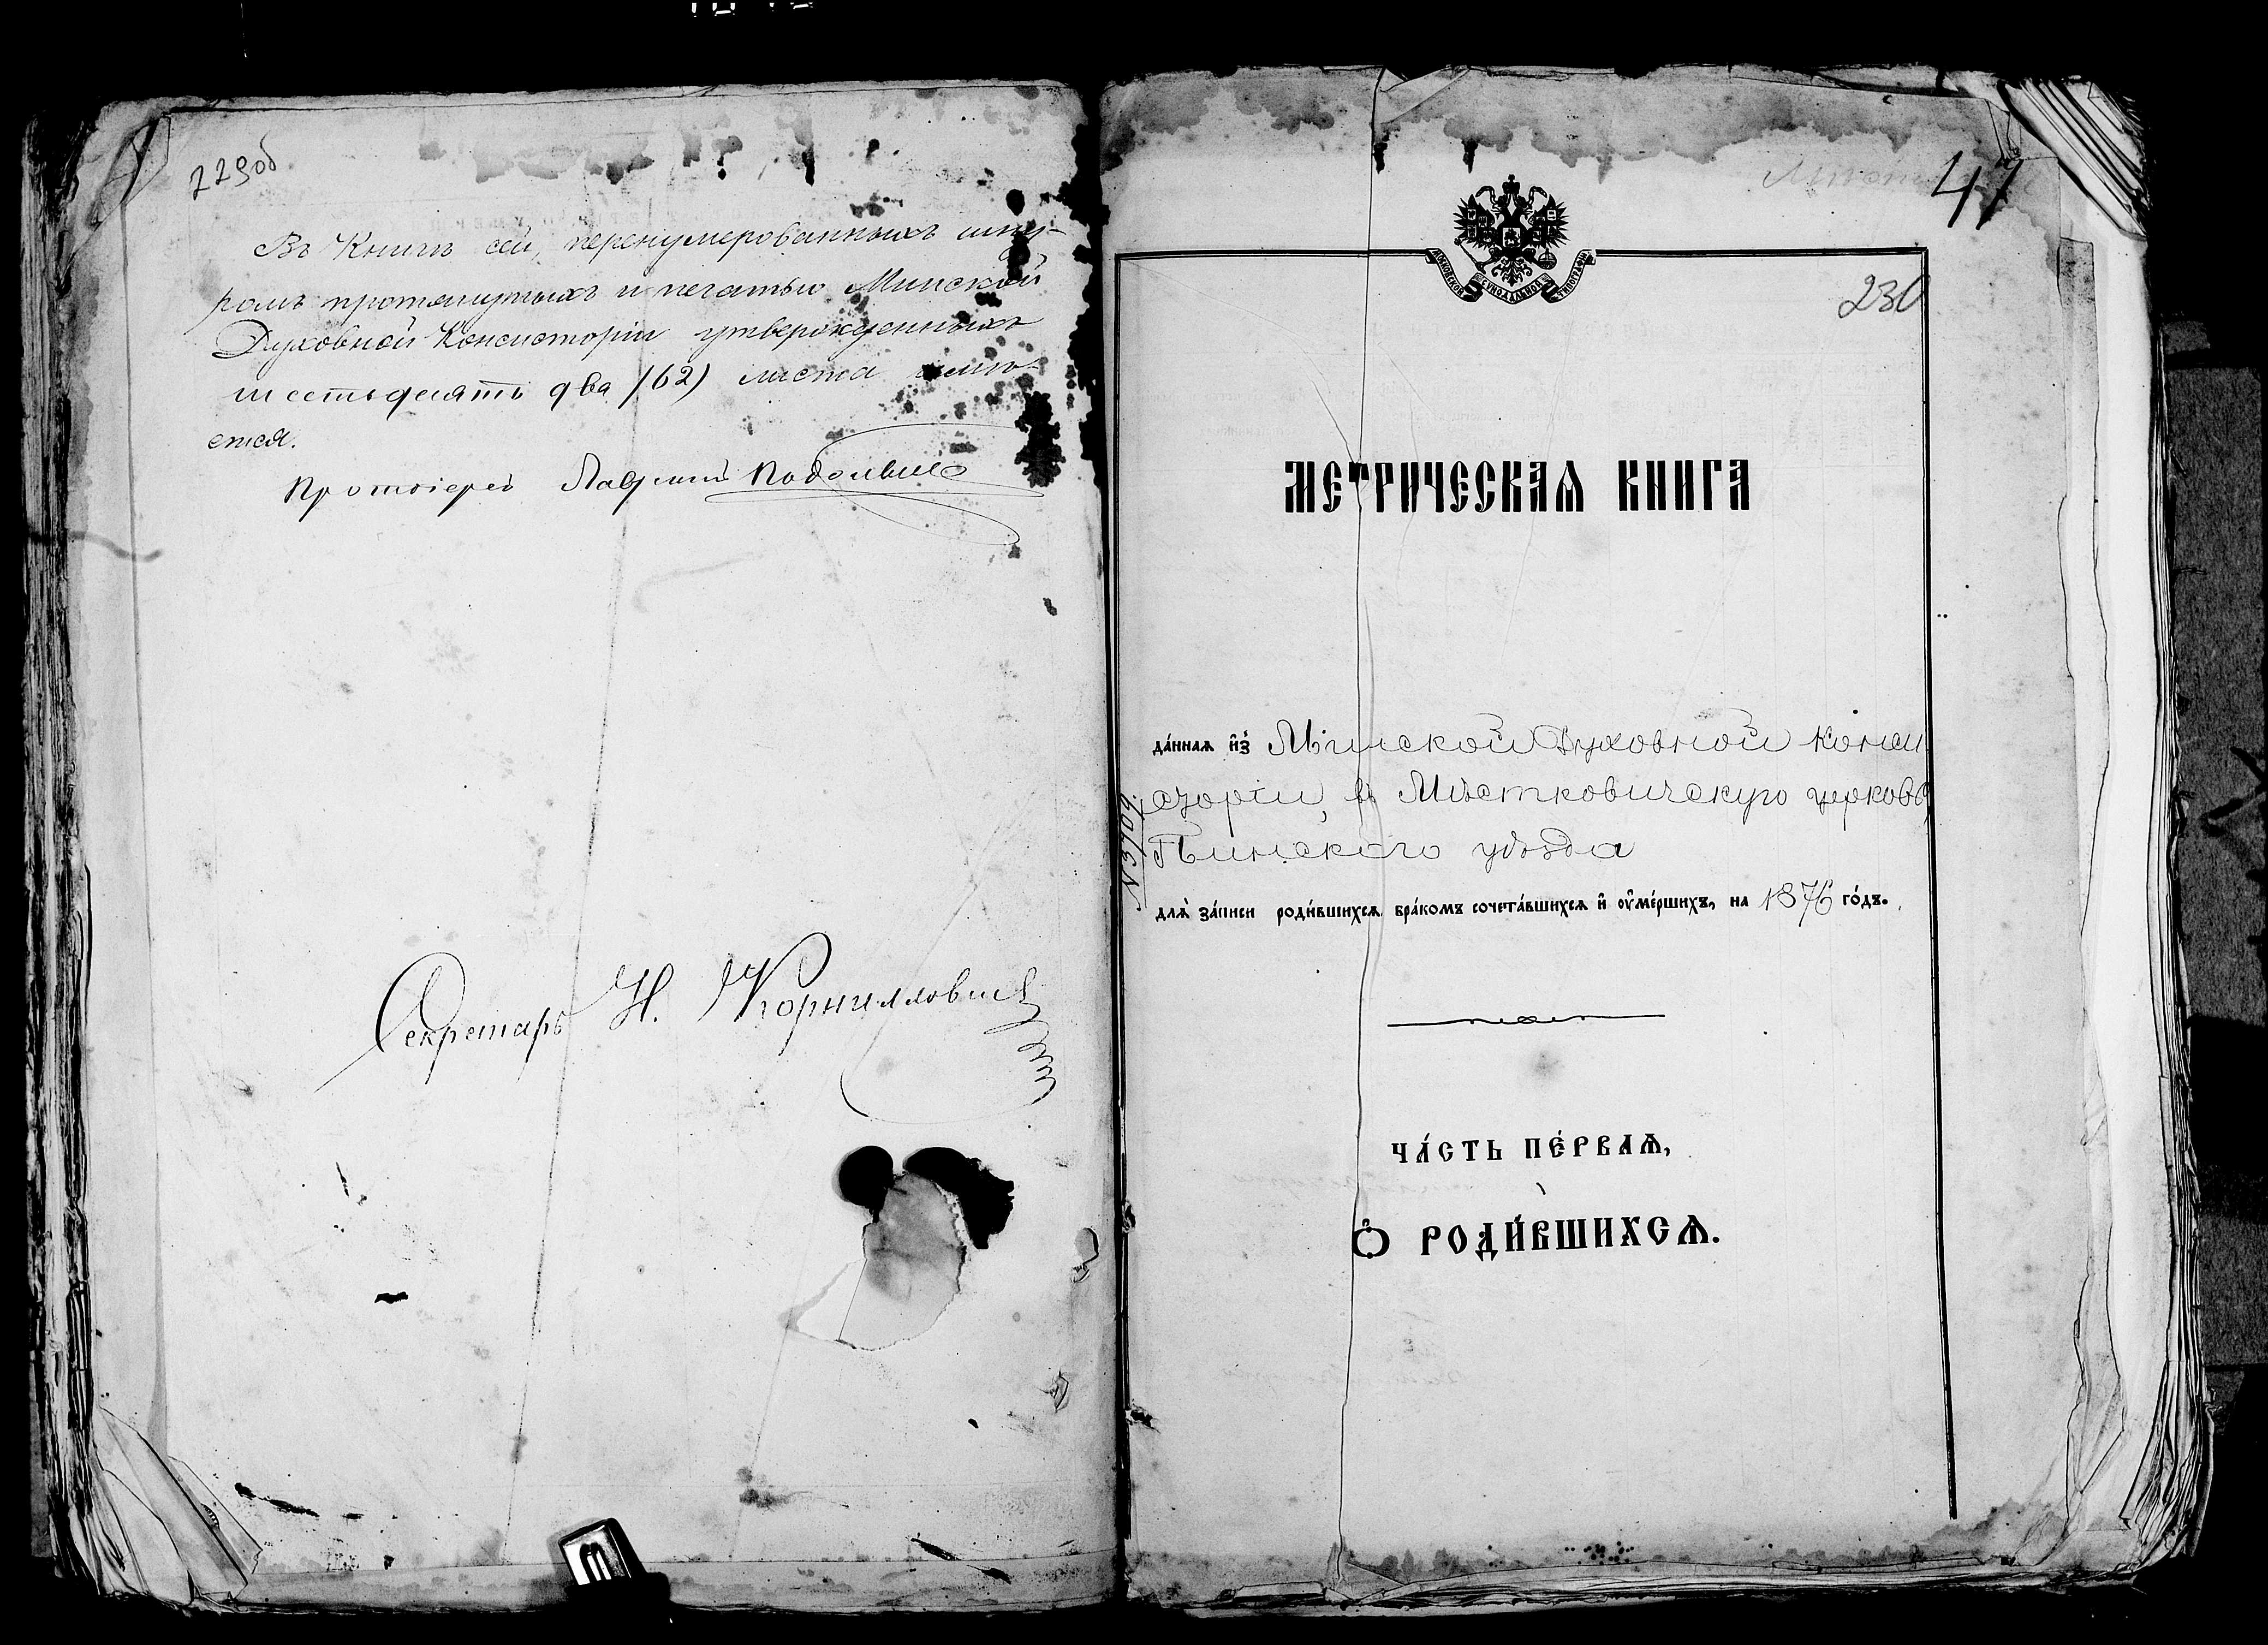 229об
Въ Книгѣ сей, перенумерованныхъ шну-
ромъ протянутыхъ и печатью Минской
Духовной Консисторіи утвержденныхъ
шестьдесятъ два (62) листа имѣ-
ется.
Протоіерей Подольскій
Секретарь Н. Корниловичъ
47
МОСКОВСКОЙ СѴНОДАЛЬНОЙ ТИПОГРАФІИ
230
МЕТРИЧЕСКАЯ КНИГА
да́нная и҆з̾ Минской Духовной Конси
сторіи, въ Мѣстковичскую церковь
Пинскаго уѣзда
N 3909.
для̀ за́писи роди́вшихся, бра́комъ сочета́вшихся и҆ ᲂу҆ме́ршихъ, на 1876 го́дъ.
ЧА́СТЬ ПЕ́РВАЯ,
Ѽ РОДИ́ВШИХСЯ.